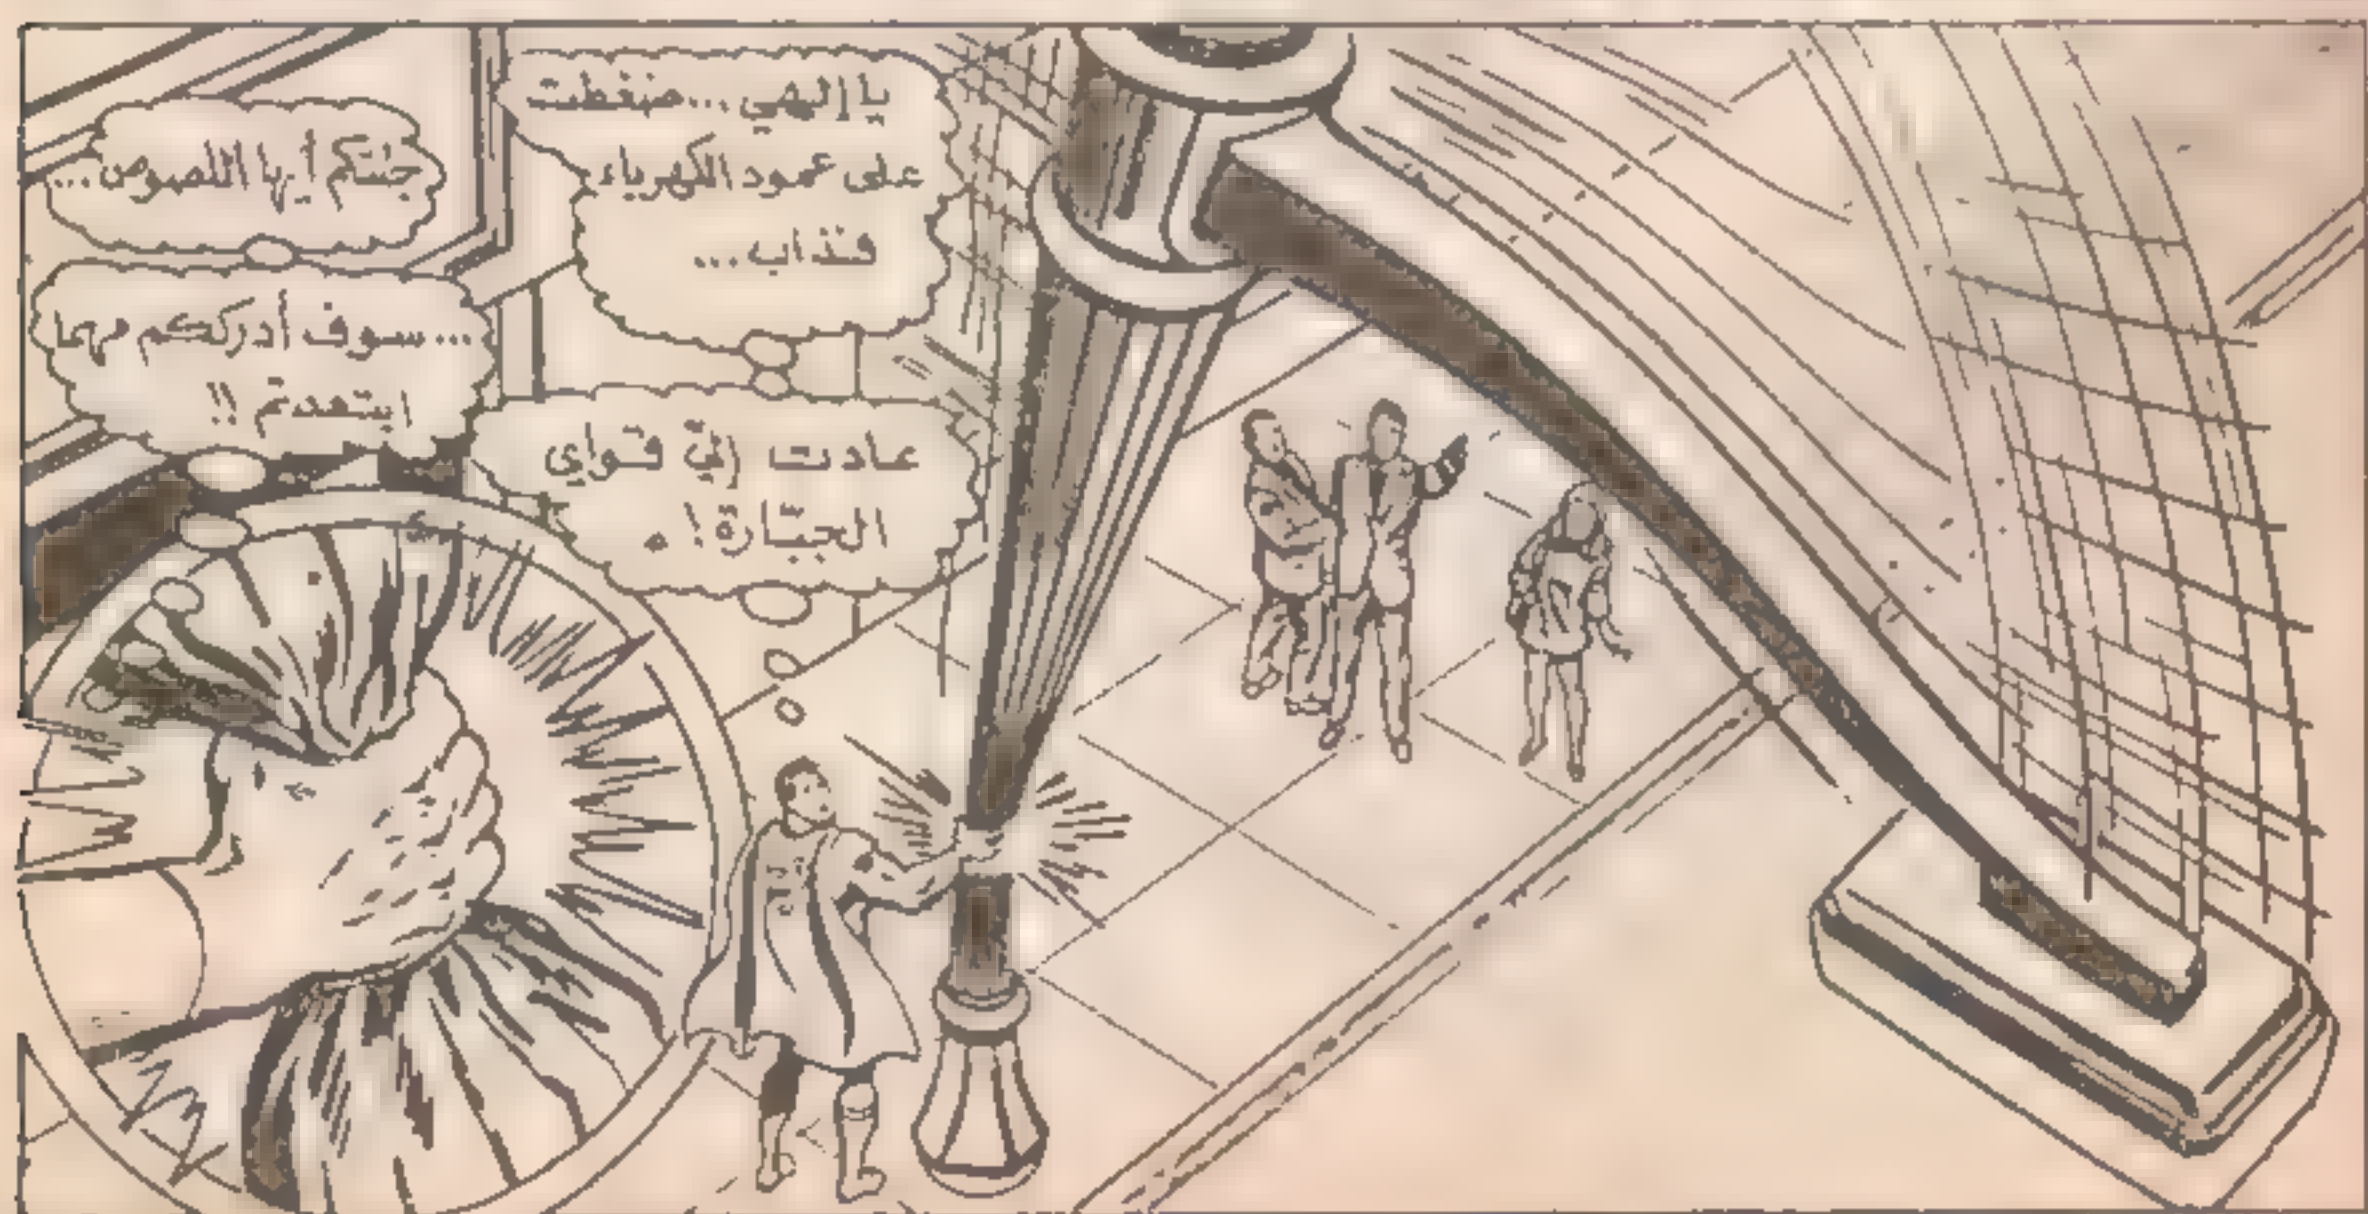 يا إلهي... ضغطت
على عمود الكهرباء
فذاب...
عادت إليّ قواي
الجبّارة!
جئتكم أيها اللصوص...
...سوف أدرككم مهما
ابتعدتم!!